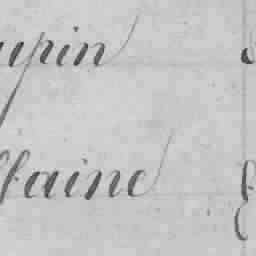 upin
ffaine